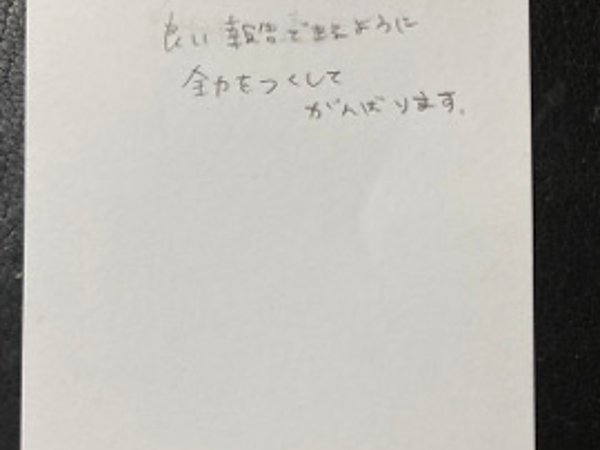 良い報告できるように
全力をつくして
がんばります。